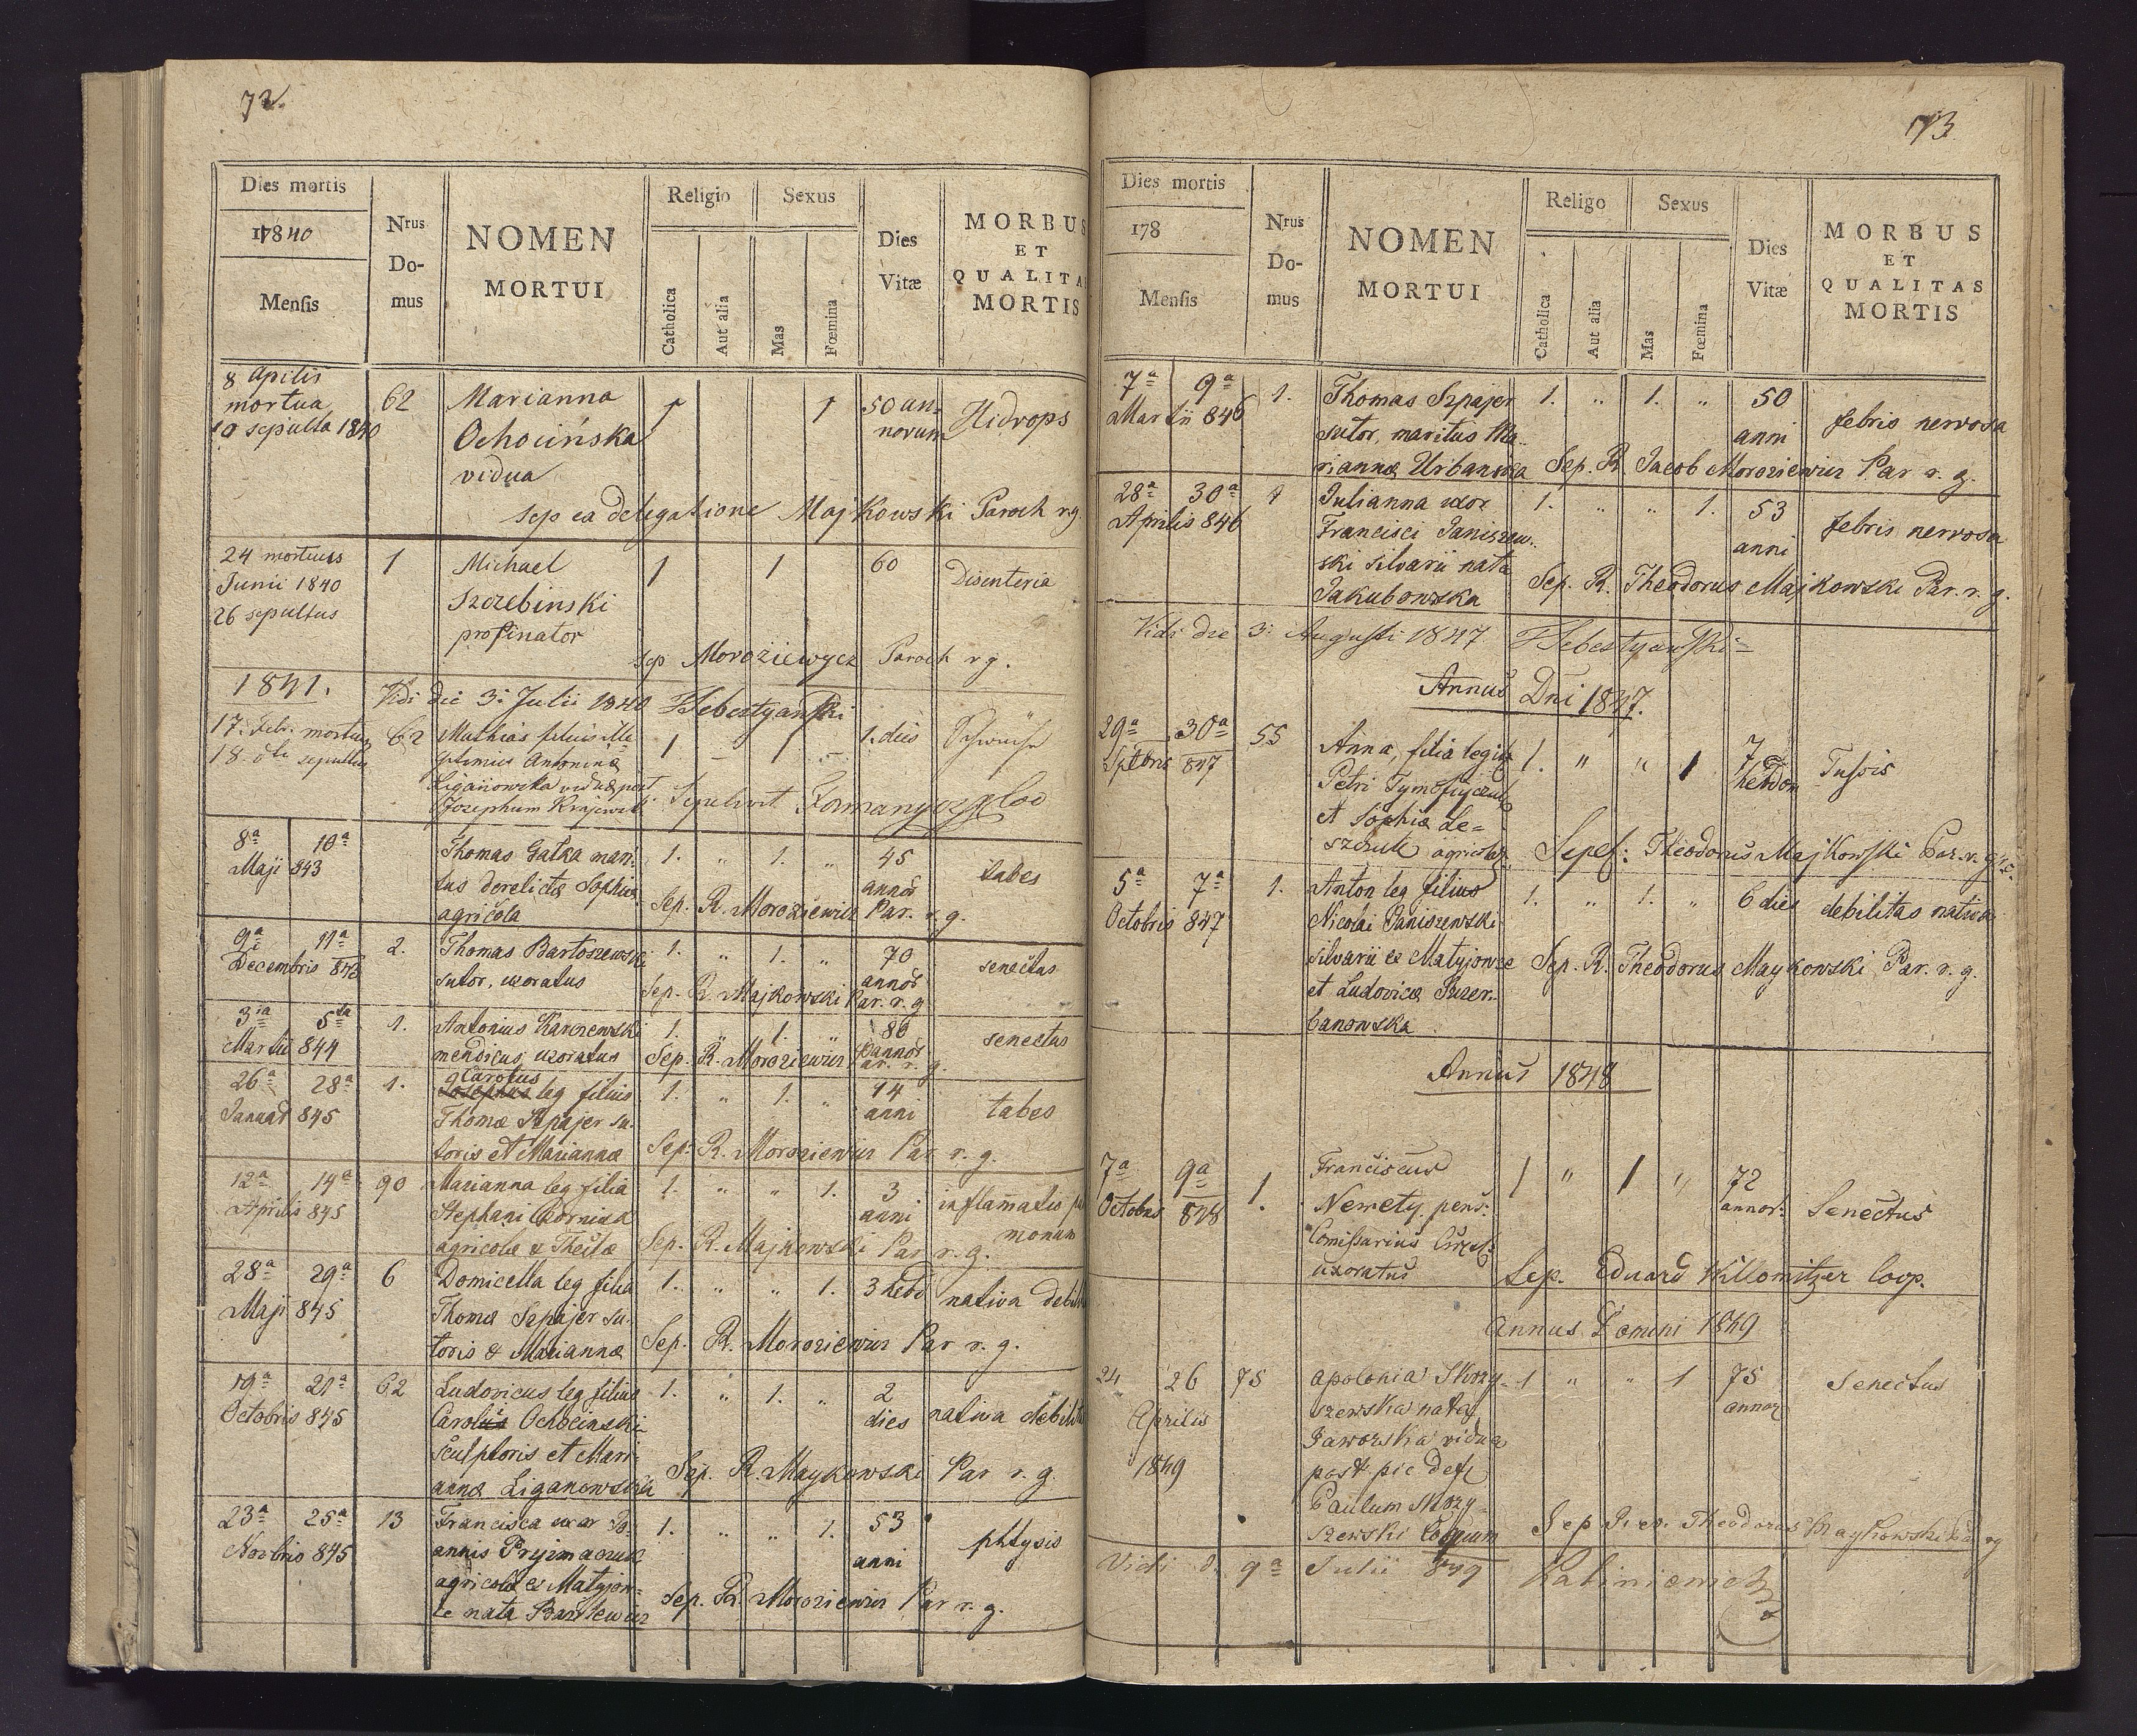 72.
Dies mortis
17840
Mensis
Nrus Do-mus
NOMEN MORTUI
Religio
Catholica
Aut alia
Sexus
Mas
Fœmina
Dies Vitæ
MORBUS ET QUALITA MORTIS
8 Aprilis mortua 10 sepulta 1840
62
Marianna
Ochocińska
vidua
1 1
50 an-norum
Hidrops
sep ea delegatione Majkowski Paroch r.g.
24 mortuus Junii 1840 26 sepultus
1
Michael
Szczebinski
propinator
1 1
60
Disenteria
sep Moroziewycz Paroch r g.
1841.
Vidi die 3i Julii 1840
17. Febr. mortuus
18. sepultus
62
Mathias filius ille-
gitimus Antoninæ
Liganowska viduæ post
Josephum
1 – 1 –
1. dies
Sepelivit
8ª 10ª
Maji 843
Thomas Gatka mari-
tus derelictæ Sophiæ
agricola
1. " 1. "
45 annor
tabes
Sep. R. Moroziewicz Par. r. g.
9ª 11ª
Decembris 843
2.
Thomas Bartoszewski
sutor, uxoratus
1. " 1. "
70 annor
senectus
Sep. R. Majkowski Par. r. g
3ia 5ta
Martii 844
1.
Antonius Karczewski
mendicus uxoratus
1. " 1. "
80 annor
senectus
Sep. R. Moroziewicz Par. r. g.
26ª 28ª
Januar 845
1.
Carolus
Josephus leg filius
Thomæ Szpajer su-
toris et Mariannæ
1. " 1. "
14 anni
tabes
Sep. R. Moroziewicz Par r. g.
12ª 14ª
Aprilis 845
90
Marianna leg filia
Stephani Czorniak
agricolæ & Theclæ
1. " " 1.
3 anni
inflamatio
monum
Sep. R. Majkowski Par r. g.
28ª 29ª
Maji 845
6
Domicella leg filia
Thomæ Szpajer su-
toris & Mariannæ
1. " " 1.
3 hebd
nativa debil
Sep. R. Moroziewicz Par r. g.
19ª 21ª
Octobris 845
62
Ludovicus leg filius
Caroli Ochocinski
sculptoris et Mari-
annæ Liganowska
1. " 1. "
2 dies
nativa debilit
Sep. R. Maykowski Par r. g.
23ª 25ª
Novbris 845
13
Francisca uxor Jo-
annis Pryjmaczuk
agricolæ ex Matyjow-
ce nata Bartlewicz
1. " " 1.
53 anni
phtysis
Sep. R. Moroziewicz Par r. g.
173
Dies mortis
178
Mensis
Nrus Do-mus
NOMEN MORTUI
Religo
Catholica
Aut alia
Sexus
Mas
Fœmina
Dies Vitæ
MORBUS ET QUALITAS MORTIS
7ª 9ª
Martii 846
1.
Thomas Szpajer
sutor, maritus Ma-
riannæ Urbanska
1. " 1. "
50 anni
febris nervosa
Sep. R. Jacob Moroziewicz Par r. g.
28ª 30ª
Aprilis 846
1
Julianna uxor
Francisci Janiszew-
ski silvarii nata
Jakubowska
1. " " 1.
53 anni
febris nervosa
Sep. R. Theodorus Majkowski Par. r. g.
Vidi die 3i Augusti 1847
Annus Dni 1847.
29ª 30ª
Sptbris 847
55
Anna, filia legit
Petri Tymofijczuk
et Sophiæ Le=
szczuk agricolar.
1. " " 1
7
Tussis
Sepel: Theodorus Majkowski Par. r. g.
5ª 7ª
Octobris 847
1.
Anton leg filius
Nicolai Janiszewski
silvarii ex Matyjowce
et Ludovicæ
banowska
1. " 1. "
6 dies
debilitas nativa
Sep. R. Theodorus Maykowski Par. r. g.
Annus 1848
7ª 9ª
Octobris 848
1.
Franciscus
Nemety, pens.
Comissarius Circul:
uxoratus
1 " 1 "
72 annor:
Senectus
Sep. Eduard Willomitzer Coop.
Annus Domini 1849
24 26
Aprilis
1849
75
Apolonia Skrzy-
szewska nata
Jaworska vidua
post pie def
Paulum Skrzy-
szewski
1 " " 1
75 annor
Senectus
Sep Theodorus Maykowski
Vidi d. 9ª Julii 849